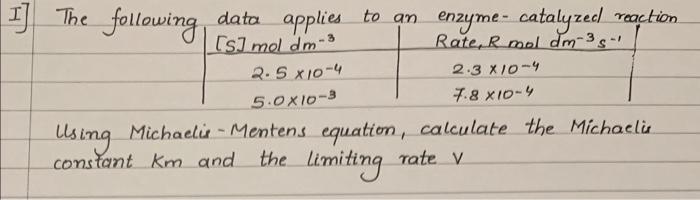 I] The following data applies to an enzyme-catalyzed reaction
[S] mol dm⁻³ Rate, R mol dm⁻³ s⁻¹
2.5 x10⁻⁴ 2.3 x10⁻⁴
5.0x10⁻³ 7.8 x10⁻⁴
Using Michaelis-Mentens equation, calculate the Michaelis
constant Km and the limiting rate V